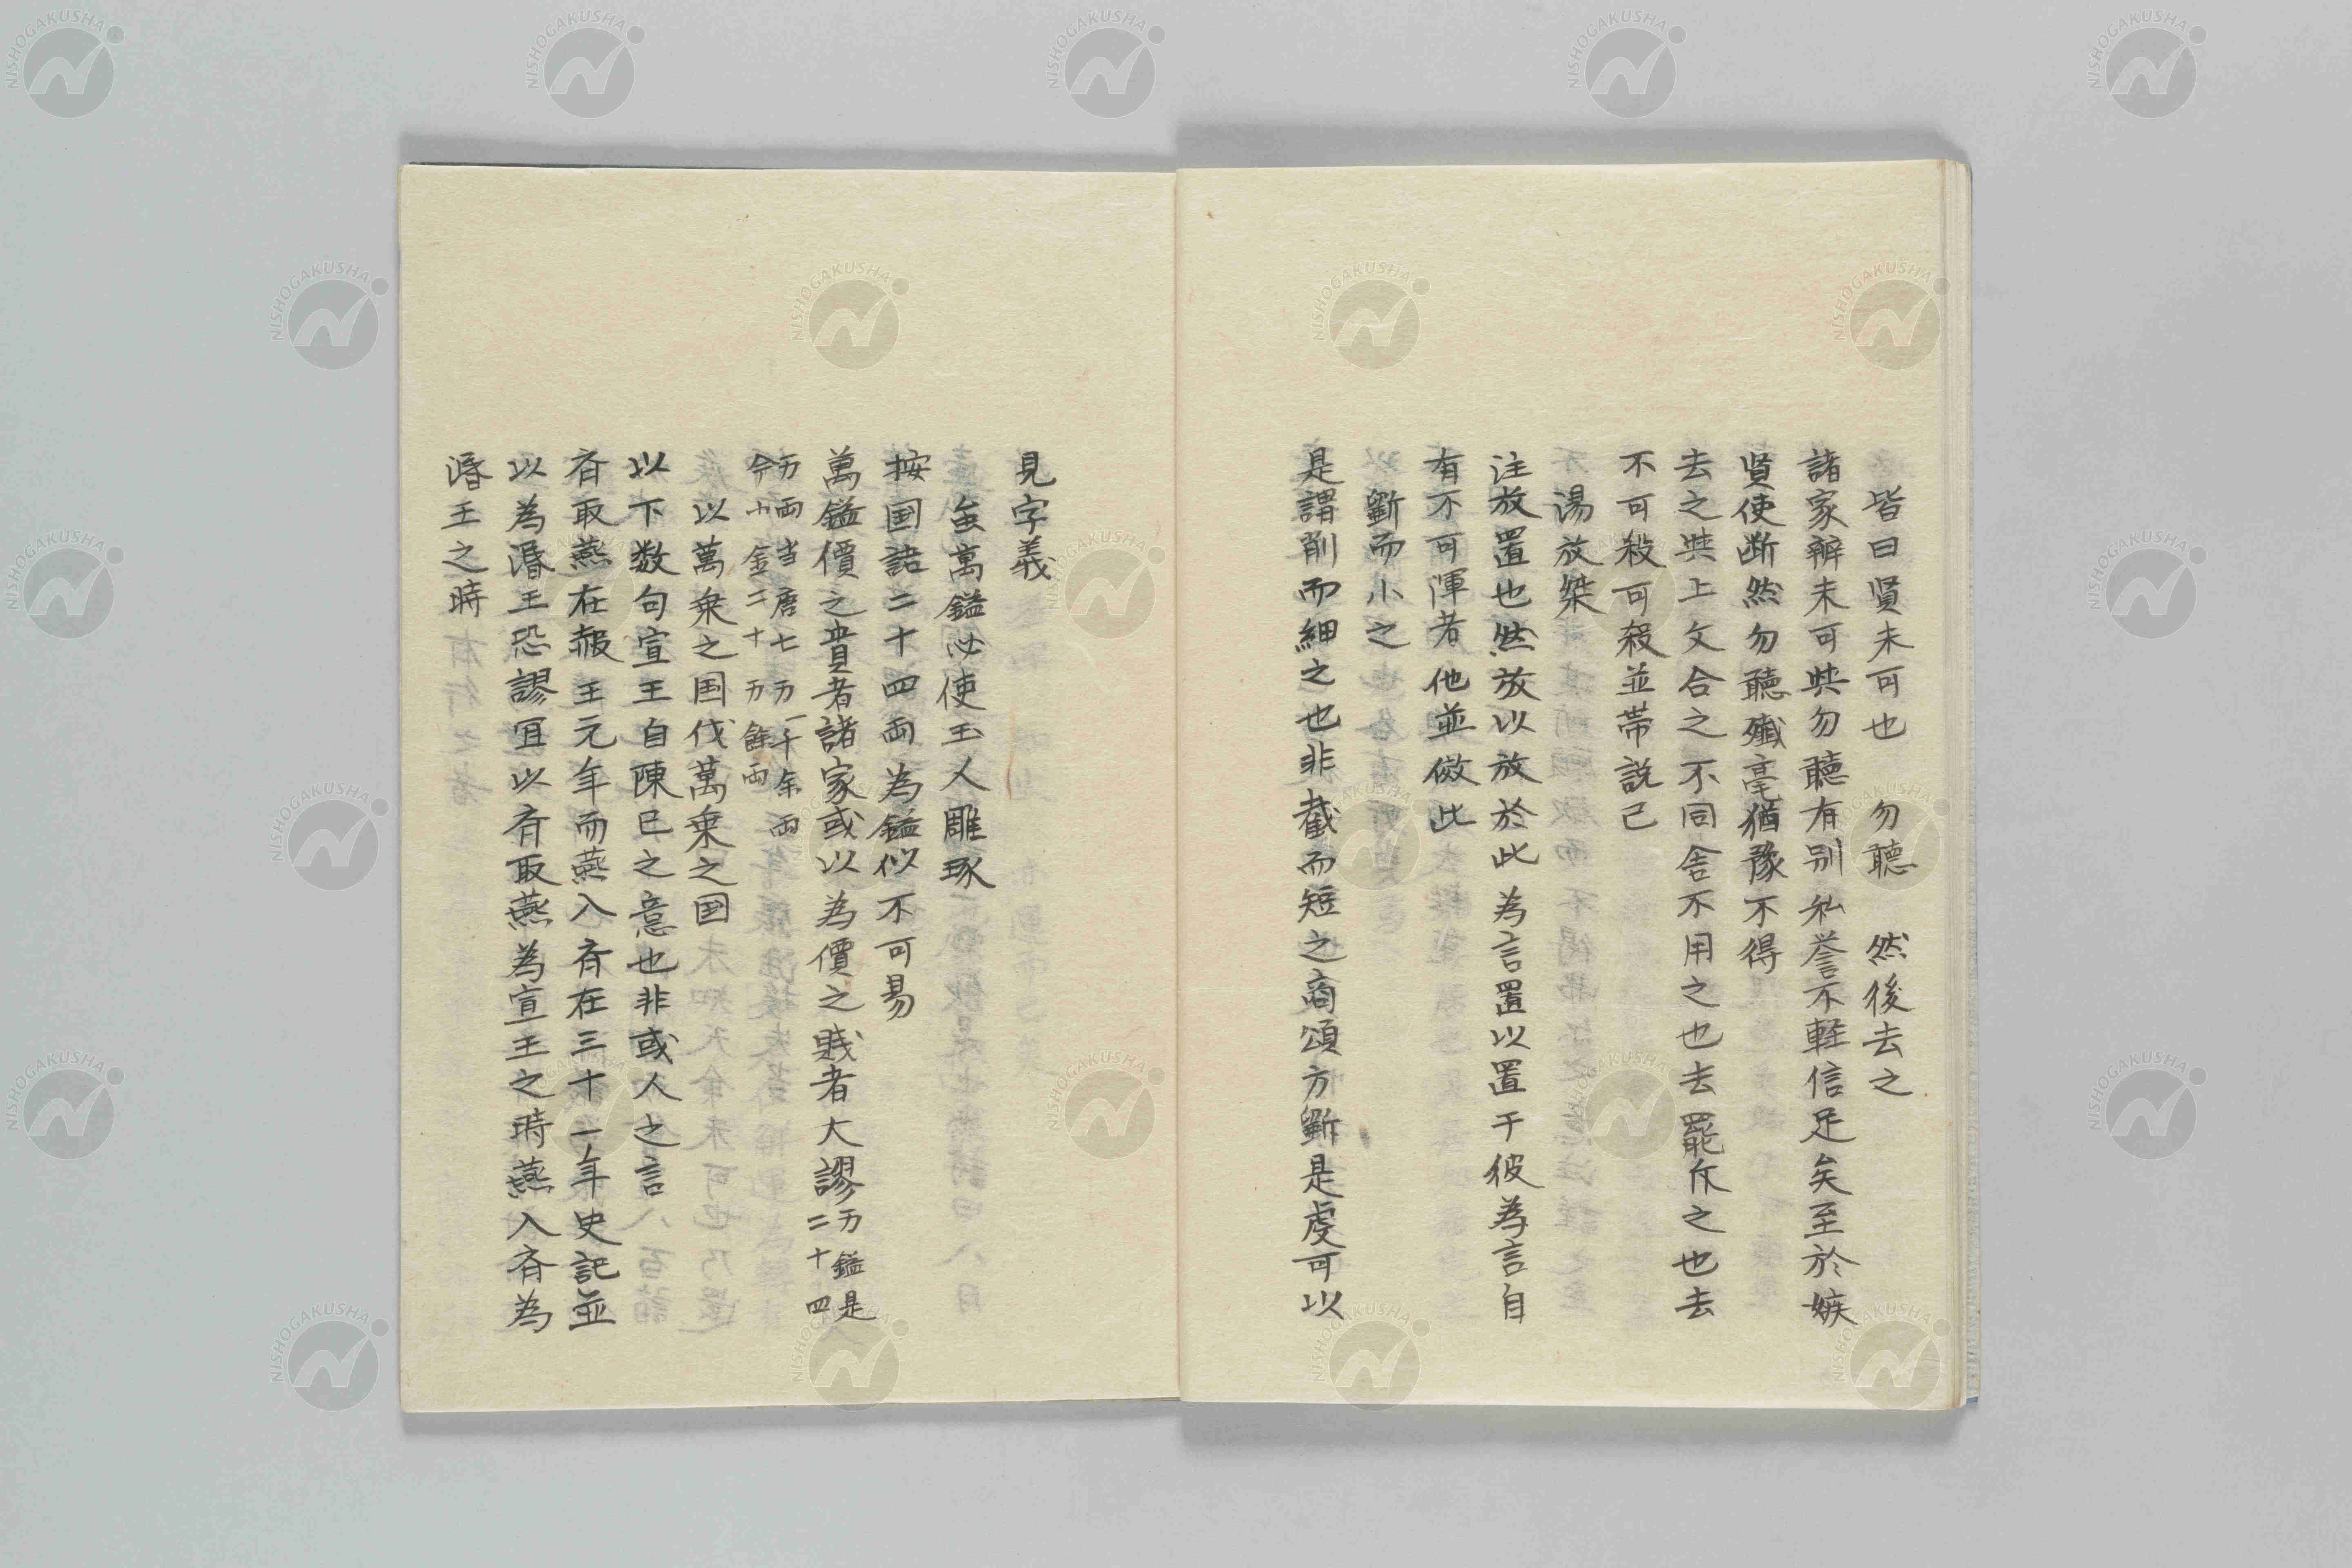 皆曰賢未可也　勿聽　然後去之
諸家辨未可與勿聽有別私誉不軽信足矣至於嫉
賢使断然勿聽殲毫猶豫不得
去之與上文合之不同舍不用之也去罷斥之也去
不可殺可殺並帯説已
湯放桀
注放置也然放以放於此為言置以置于彼為言自
有不可渾者他並倣此
斵而小之
是謂削而細之也非截而短之商頌方斵是虔可以
見字義
虽萬鎰必使玉人雕琢
按国語二十四兩為鎰似不可易
萬鎰價之貴者諸家或以為價之賎者大謬万鎰是二十四
万兩当唐七万一千余兩今小金二十万餘兩
以萬乗之国伐萬乗之国
以下数句宣王自陳已之意也非或人之言
斉取燕在赧王元年而燕入斉在三十一年史記並
以為湣王恐謬宜以斉取燕為宣王之時燕入斉為
湣王之時
NISHOGAKUSHA